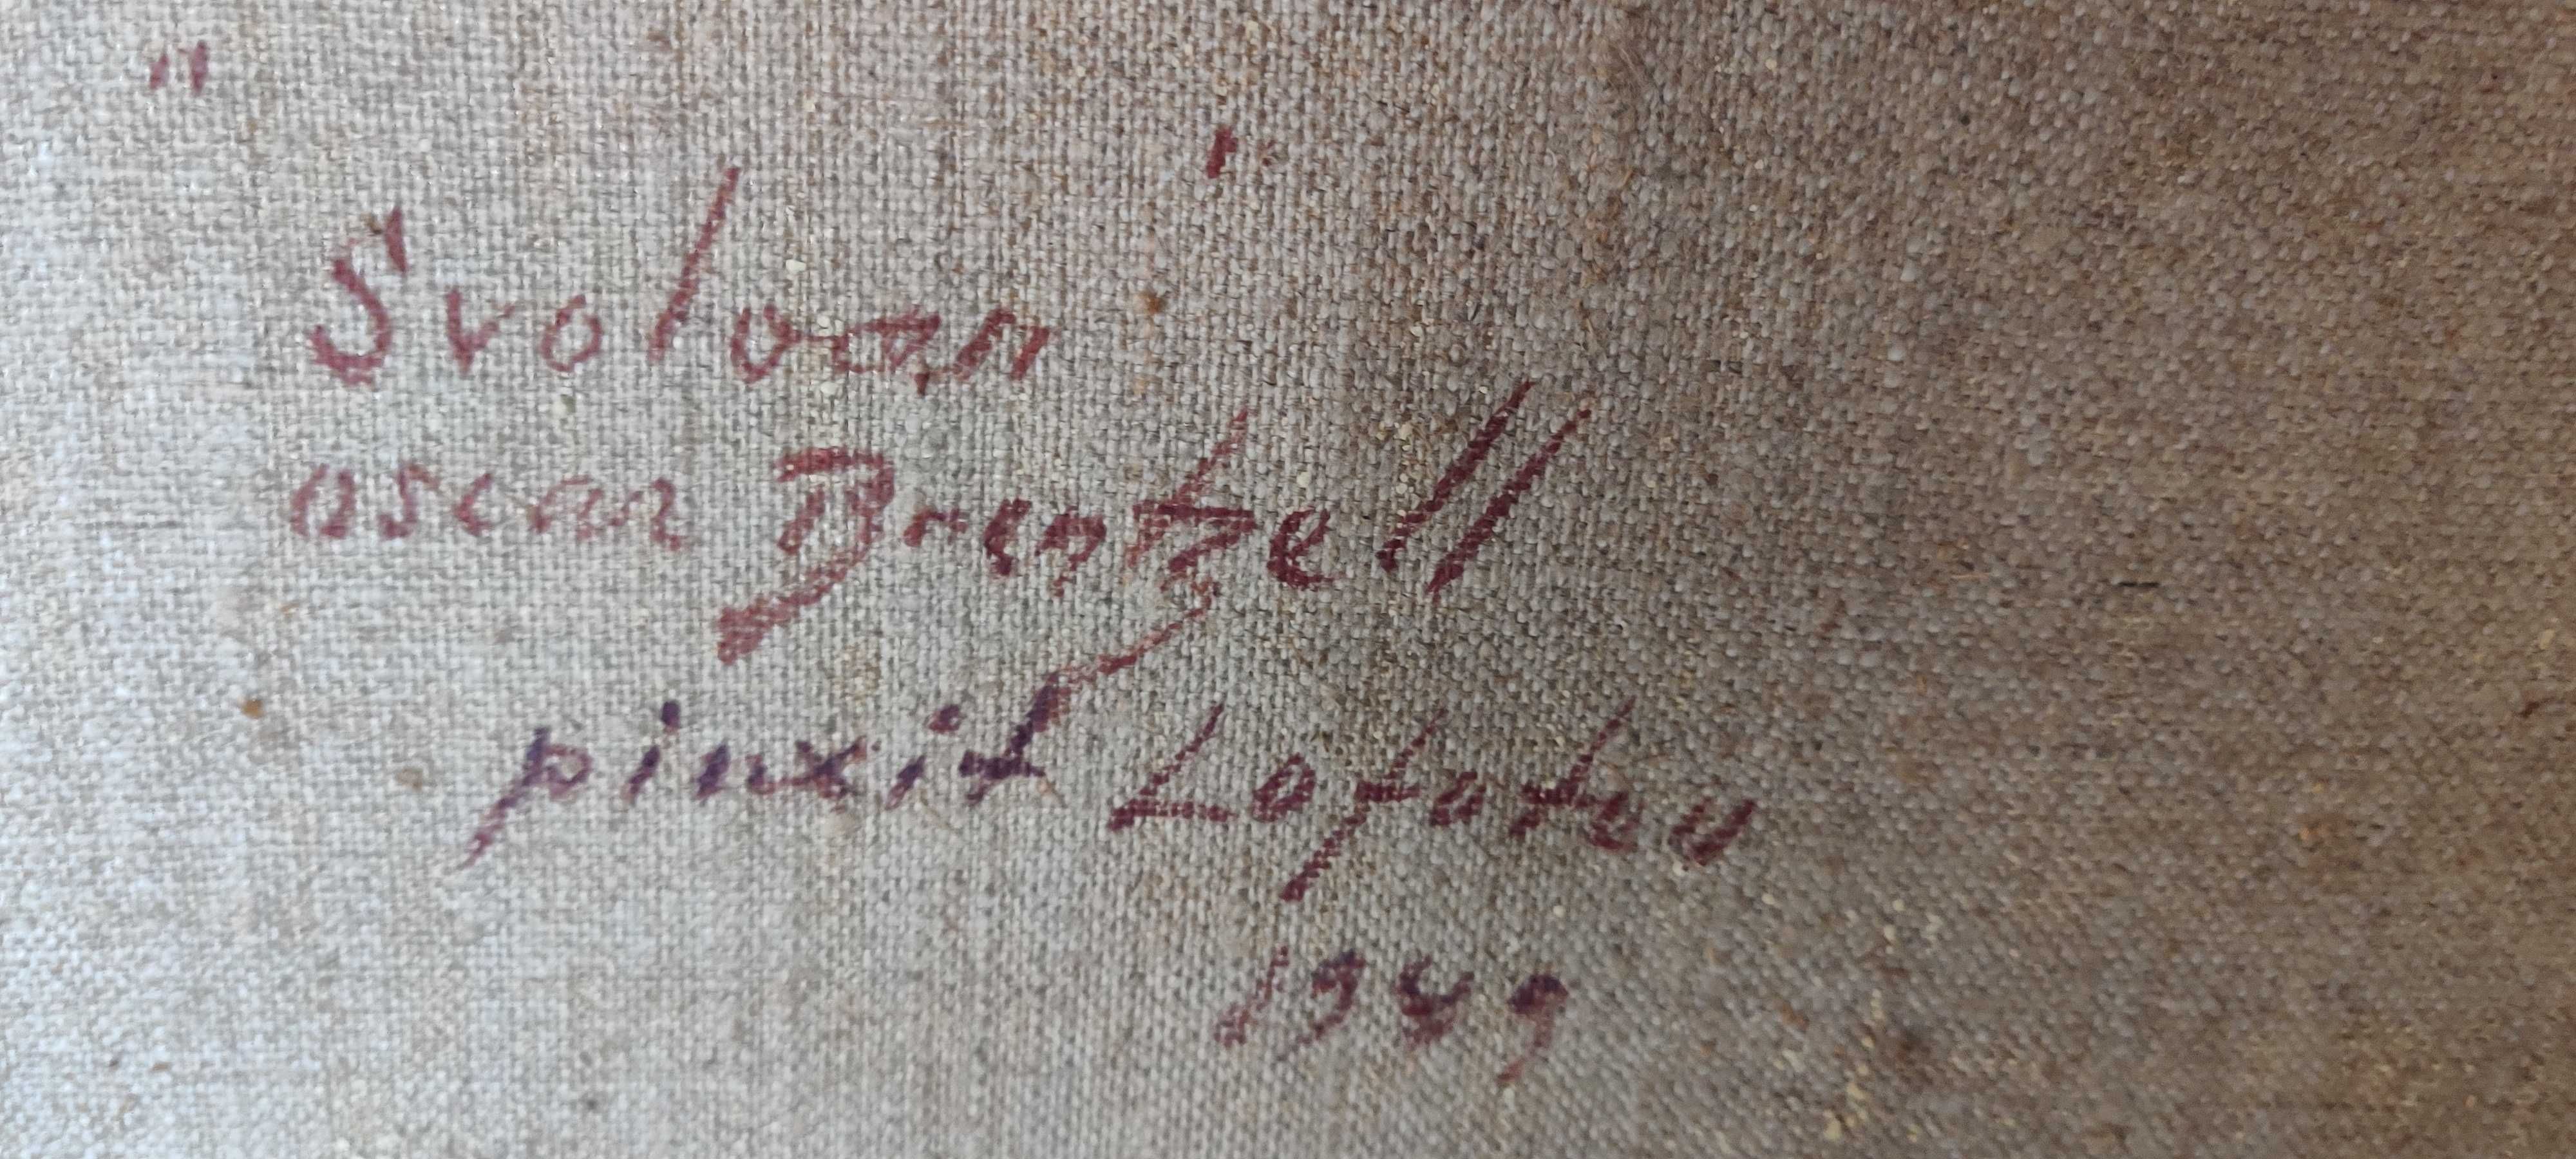 " "
Svolvan
oscar Brentzell
pinxit Lofoten
1949